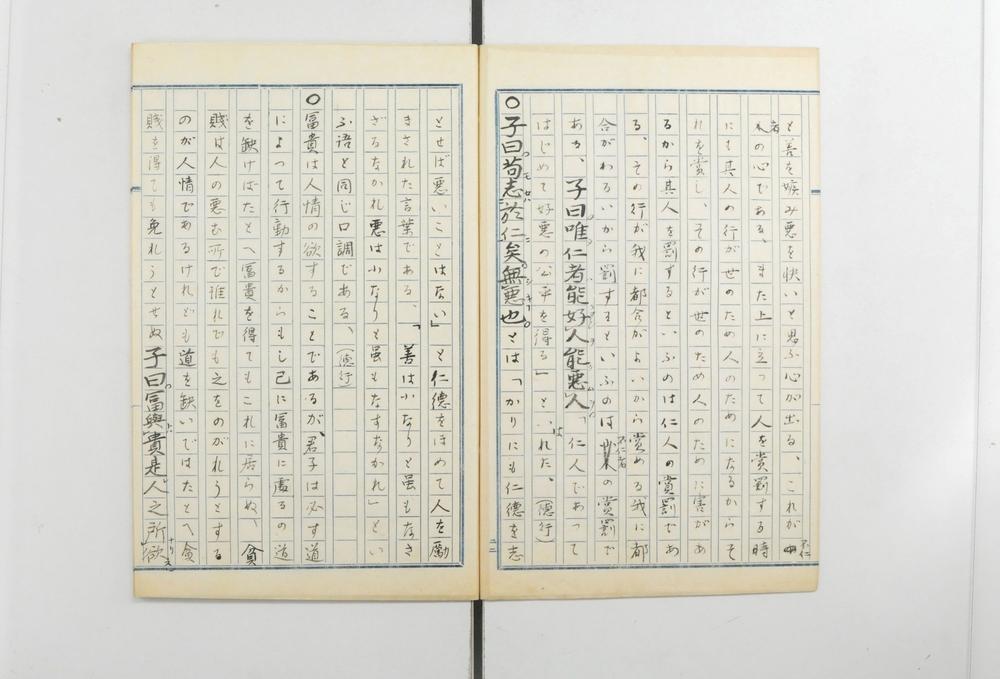 と善を嫉み悪を快いと思ふ心が出る、これが不仁
者の心である、また上に立つて人を賞罰する時
にも其人の行が世のため人のためになるからそ
れを賞し、その行が世のため人のために害があ
るから其人を罰するといふのは仁人の賞罰であ
る、その行が我に都合がよいから賞める我に都
合がわるいから罰するといふのは不仁者の賞罰で
ある、子曰唯仁者能好人能悪人「仁人であつて
はじめて好悪の公平を得る」といはれた、(徳行)
○子曰苟志於仁矣無悪也とは「かりにも仁徳を志
とせば悪いことはない」と仁徳をほめて人を励
まされた言葉である、「善は小なりと虽もなさ
ざるなかれ悪は小なりと虽もなすなかれ」とい
ふ語と同じ口調である、(徳行)
○冨貴は人情の欲することであるが、君子は必す道
によつて行動するからもし己に冨貴に處るの道
を缺けばたとへ冨貴を得てもこれに居らぬ、貧
賎は人の悪む所で誰れでも之をのがれうとする
のが人情であるけれども道を缺いではたとへ貧
賎を得ても免れうとせぬ子曰冨與貴是人之所欲
二二